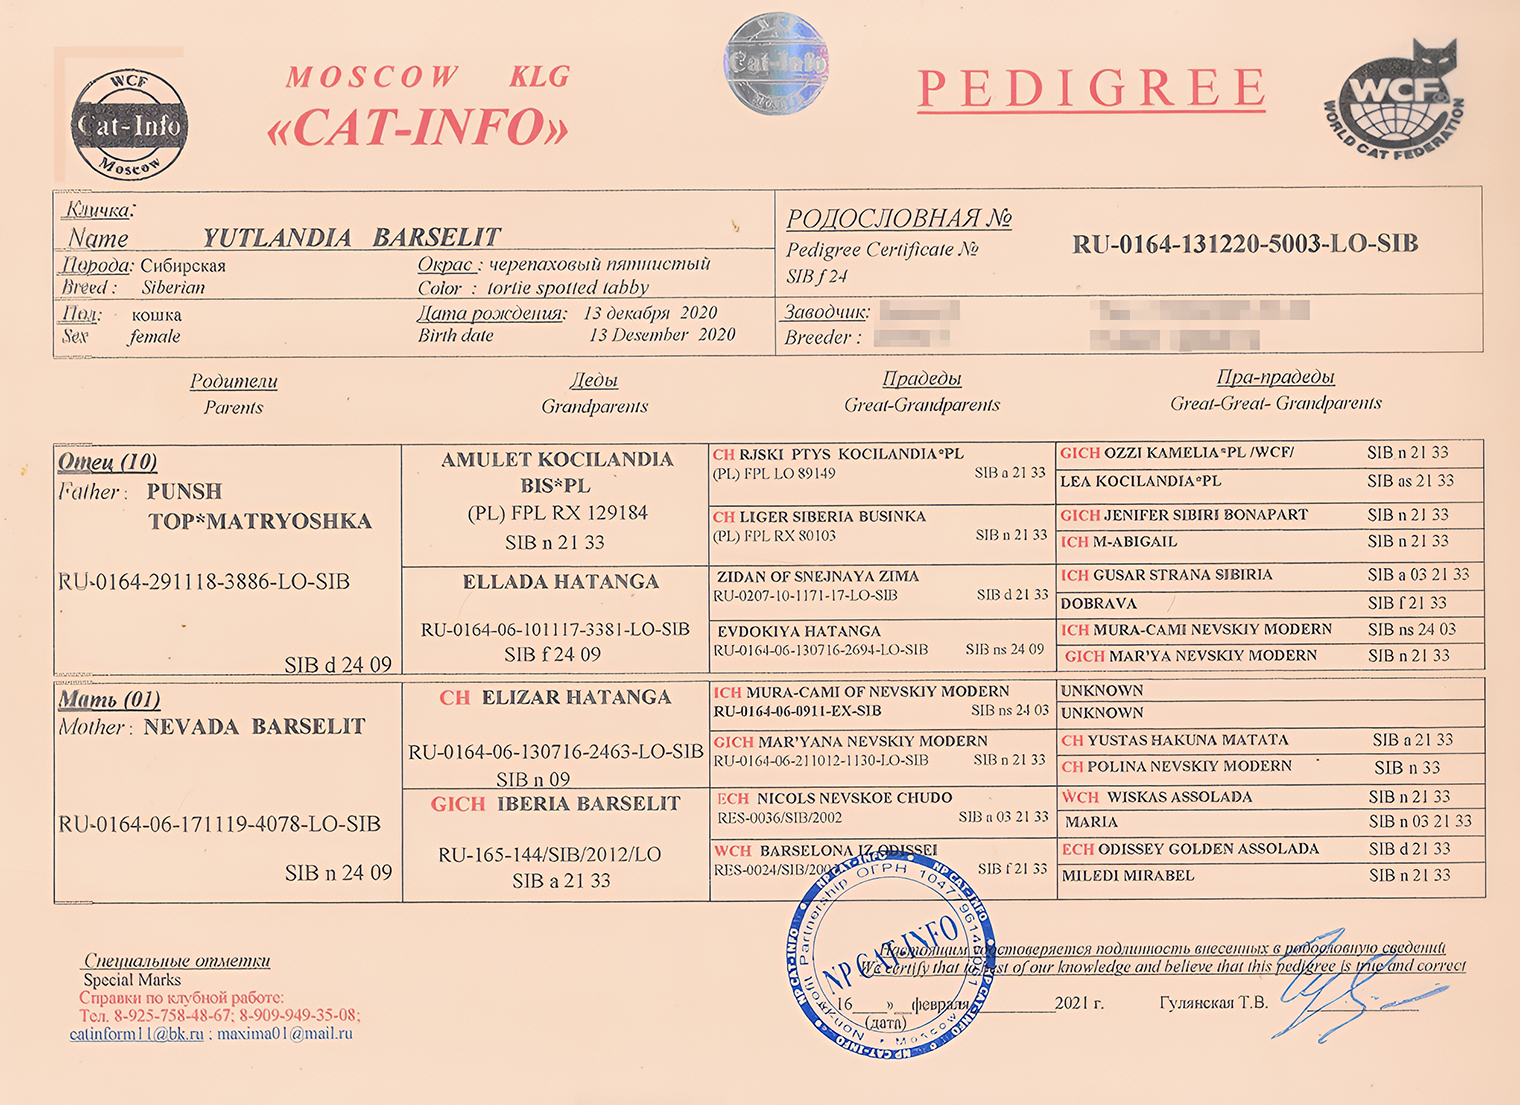 WCF
Cat-Info
Moscow
MOSCOW KLG
«CAT-INFO»
Cat-Info
PEDIGREE
WCF
WORLD CAT FEDERATION
Кличка:
Name YUTLANDIA BARSELIT
РОДОСЛОВНАЯ №
Pedigree Certificate № RU-0164-131220-5003-LO-SIB
SIB f 24
Порода: Сибирская Окрас : черепаховый пятнистый
Breed : Siberian Color : tortie spotted tabby
Пол: кошка Дата рождения: 13 декабря 2020
Sex female Birth date 13 Desember 2020
Заводчик:
Breeder :
Родители Деды Прадеды Пра-прадеды
Parents Grandparents Great-Grandparents Great-Great- Grandparents
Отец (10)
Father : PUNSH
TOP*MATRYOSHKA
RU-0164-291118-3886-LO-SIB
SIB d 24 09
AMULET KOCILANDIA
BIS*PL
(PL) FPL RX 129184
SIB n 21 33
ELLADA HATANGA
RU-0164-06-101117-3381-LO-SIB
SIB f 24 09
CH RJSKI PTYS KOCILANDIA*PL
(PL) FPL LO 89149 SIB a 21 33
CH LIGER SIBERIA BUSINKA
(PL) FPL RX 80103 SIB n 21 33
ZIDAN OF SNEJNAYA ZIMA
RU-0207-10-1171-17-LO-SIB SIB d 21 33
EVDOKIYA HATANGA
RU-0164-06-130716-2694-LO-SIB SIB ns 24 09
GICH OZZI KAMELIA*PL /WCF/ SIB n 21 33
LEA KOCILANDIA*PL SIB as 21 33
GICH JENIFER SIBIRI BONAPART SIB n 21 33
ICH M-ABIGAIL SIB n 21 33
ICH GUSAR STRANA SIBIRIA SIB a 03 21 33
DOBRAVA SIB f 21 33
ICH MURA-CAMI NEVSKIY MODERN SIB ns 24 03
GICH MAR'YA NEVSKIY MODERN SIB n 21 33
Мать (01)
Mother : NEVADA BARSELIT
RU-0164-06-171119-4078-LO-SIB
SIB n 24 09
CH ELIZAR HATANGA
RU-0164-06-130716-2463-LO-SIB
SIB n 09
GICH IBERIA BARSELIT
RU-165-144/SIB/2012/LO
SIB a 21 33
ICH MURA-CAMI OF NEVSKIY MODERN
RU-0164-06-0911-EX-SIB SIB ns 24 03
GICH MAR'YANA NEVSKIY MODERN
RU-0164-06-211012-1130-LO-SIB SIB n 21 33
ECH NICOLS NEVSKOE CHUDO
RES-0036/SIB/2002 SIB a 03 21 33
WCH BARSELONA IZ ODISSEI
SIB f 21 33
UNKNOWN
UNKNOWN
CH YUSTAS HAKUNA MATATA SIB a 21 33
CH POLINA NEVSKIY MODERN SIB n 33
WCH WISKAS ASSOLADA SIB n 21 33
MARIA SIB n 03 21 33
ECH ODISSEY GOLDEN ASSOLADA SIB d 21 33
MILEDI MIRABEL SIB n 21 33
Специальные отметки
Special Marks
Справки по клубной работе:
Тел. 8-925-758-48-67; 8-909-949-35-08;
catinform11@bk.ru ; maxima01@mail.ru
NP CAT-INFO
Non-profit Partnership
Moscow
Настоящим удостоверяется подлинность внесенных в родословную сведений
We certify that to best of our knowledge and believe that this pedigree is true and correct
16 » февраля 2021 г. Гулянская Т.В.
(дата)